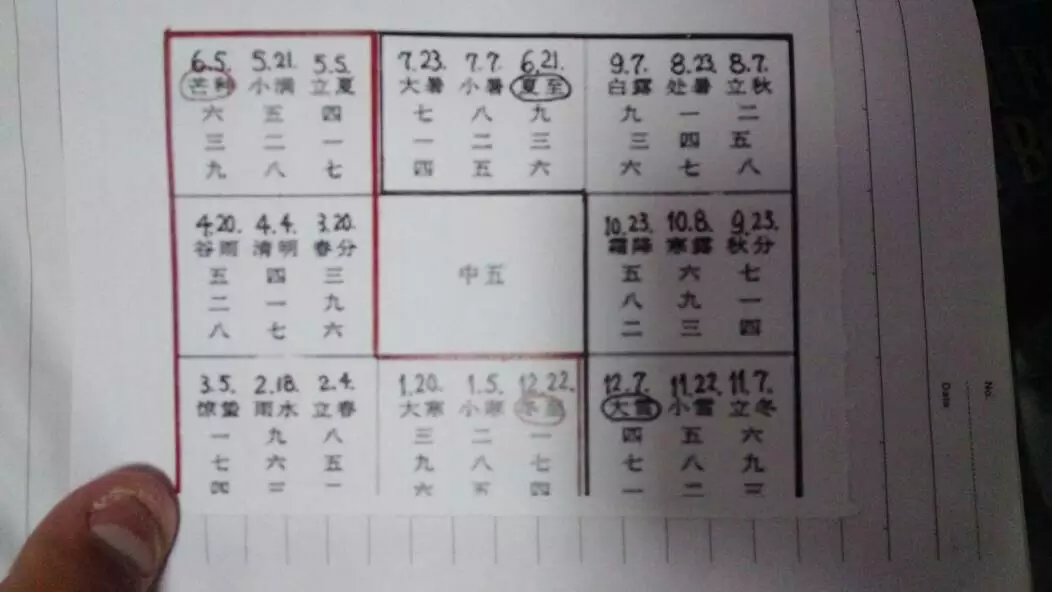 6.5. 5.21. 5.5.
芒种 小满 立夏
六 五 四
三 二 一
九 八 七
7.23. 7.7. 6.21.
大暑 小暑 夏至
七 八 九
一 二 三
四 五 六
9.7. 8.23. 8.7.
白露 处暑 立秋
九 一 二
三 四 五
六 七 八
4.20. 4.4. 3.20.
谷雨 清明 春分
五 四 三
二 一 九
八 七 六
中五
10.23. 10.8. 9.23.
霜降 寒露 秋分
五 六 七
八 九 一
二 三 四
3.5. 2.18. 2.4.
惊蛰 雨水 立春
一 九 八
七 六 五
四 三 二
1.20. 1.5. 12.22.
大寒 小寒 冬至
三 二 一
九 八 七
六 五 四
12.7. 11.22. 11.7.
大雪 小雪 立冬
四 五 六
七 八 九
一 二 三
No.
Date